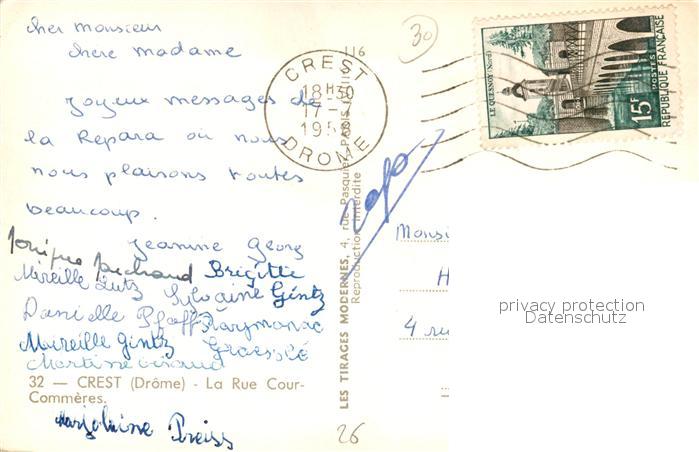 cher monsieur
chere madame
Joyeux messages de
la Répara où nous
nous plaisons toutes
beaucoup.
Jeanine Georg
Brigitte
Mireille Lutz Sylvaine Gintz
Danielle Pfaff
Mireille Gintz
Martine
32 — CREST (Drôme) - La Rue Cour-
Commères.
Marjolaine Preiss
LES TIRAGES MODERNES, 4, rue Pasquier, PARIS
Reproduction interdite
116
30
CREST
18H30
17-7
DROME
LE QUESNOY (Nord)
15F
POSTES
REPUBLIQUE FRANÇAISE
Monsi
H
4 ru
privacy protection
Datenschutz
26